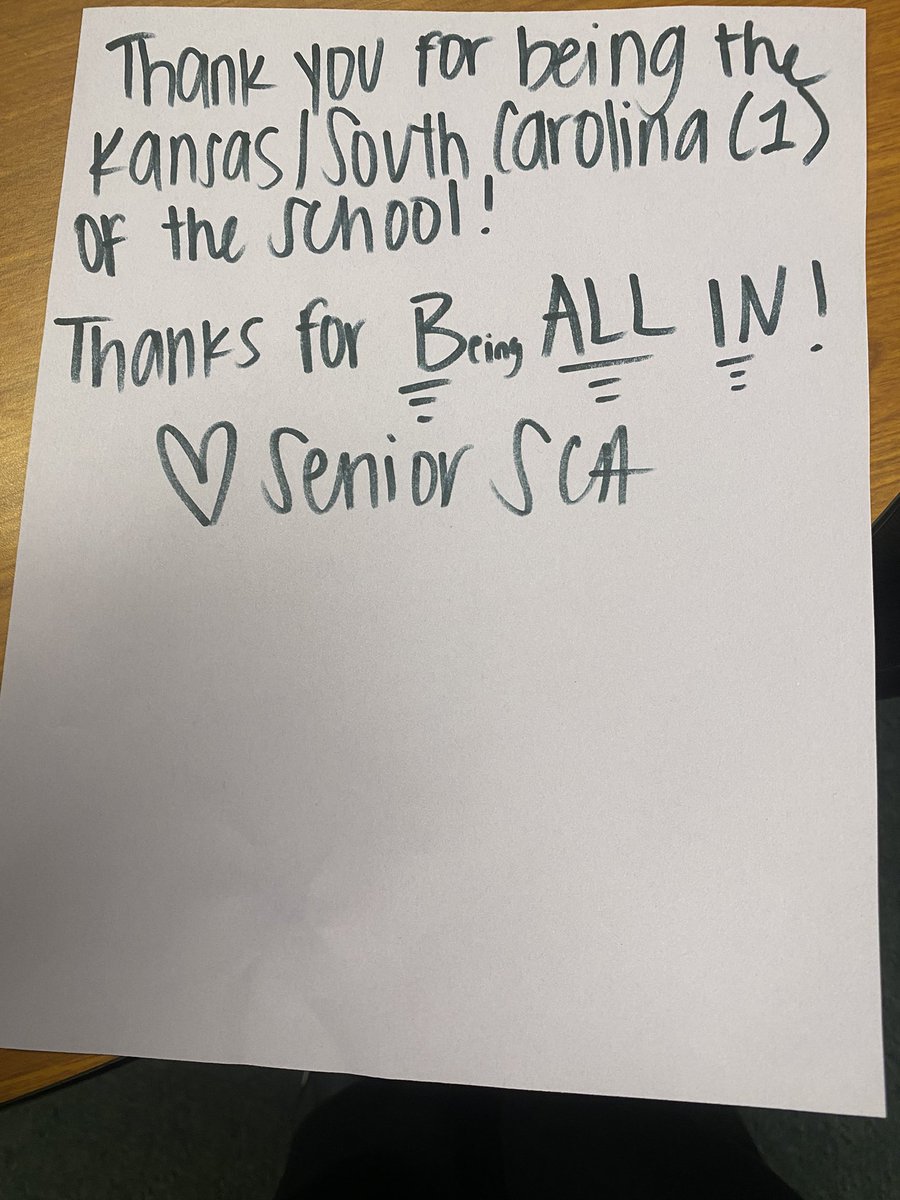 Thank you for being the
Kansas/South Carolina (1)
of the school!
Thanks for Being ALL IN!
♡ Senior SCA